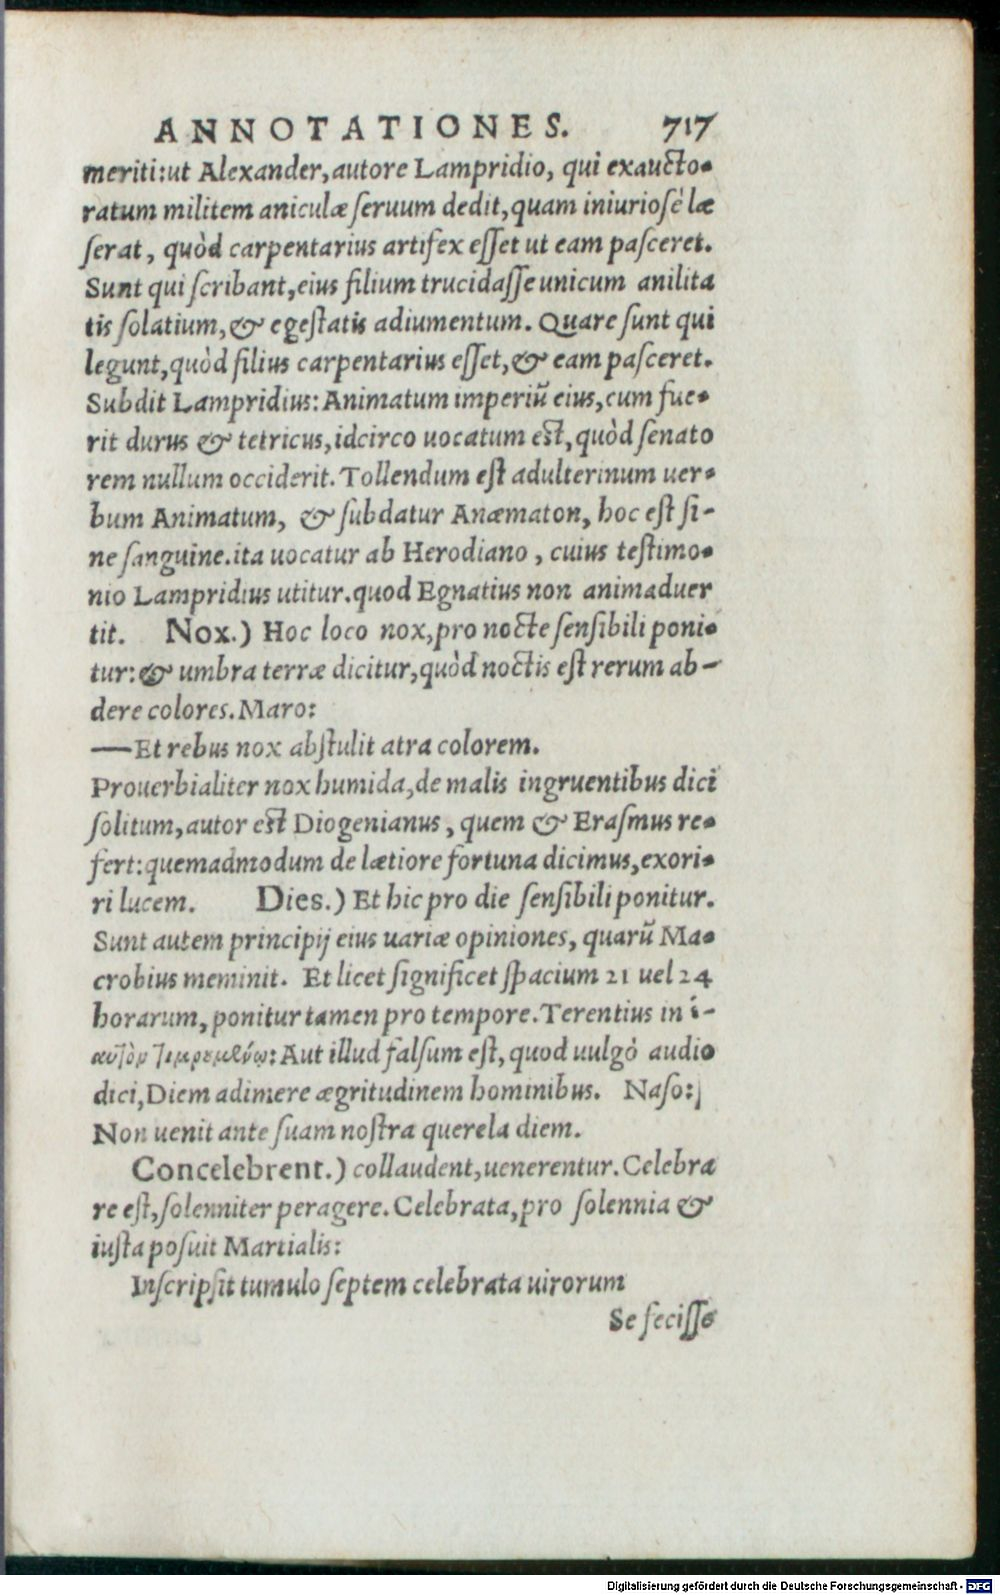 ANNOTATIONES. 717
meriti: ut Alexander, autore Lampridio, qui exaucto-
ratum militem aniculæ seruum dedit, quam iniuriosè læ
serat, quòd carpentarius artifex esset ut eam pasceret.
Sunt qui scribant, eius filium trucidasse unicum anilita
tis solatium, & egestatis adiumentum. Quare sunt qui
legunt, quòd filius carpentarius esset, & eam pasceret.
Subdit Lampridius: Animatum imperiũ eius, cum fue-
rit durus & tetricus, idcirco uocatum est, quòd senato
rem nullum occiderit. Tollendum est adulterinum uer-
bum Animatum, & subdatur Anæmaton, hoc est si-
ne sanguine. ita uocatur ab Herodiano, cuius testimo-
nio Lampridius utitur. quod Egnatius non animaduer
tit. Nox.) Hoc loco nox, pro nocte sensibili poni-
tur: & umbra terræ dicitur, quòd noctis est rerum ab-
dere colores. Maro:
—Et rebus nox abstulit atra colorem.
Prouerbialiter nox humida, de malis ingruentibus dici
solitum, autor est Diogenianus, quem & Erasmus re-
fert: quemadmodum de lætiore fortuna dicimus, exori-
ri lucem. Dies.) Et hic pro die sensibili ponitur.
Sunt autem principij eius uariæ opiniones, quarũ Ma-
crobius meminit. Et licet significet spacium 21 uel 24
horarum, ponitur tamen pro tempore. Terentius in ἑ-
αυτὸν τιμωρουμένῳ: Aut illud falsum est, quod uulgò audio
dici, Diem adimere ægritudinem hominibus. Naso:
Non uenit ante suam nostra querela diem.
Concelebrent.) collaudent, uenerentur. Celebra
re est, solenniter peragere. Celebrata, pro solennia &
iusta posuit Martialis:
Inscripsit tumulo septem celebrata uirorum
Se fecisse
Digitalisierung gefördert durch die Deutsche Forschungsgemeinschaft - DFG